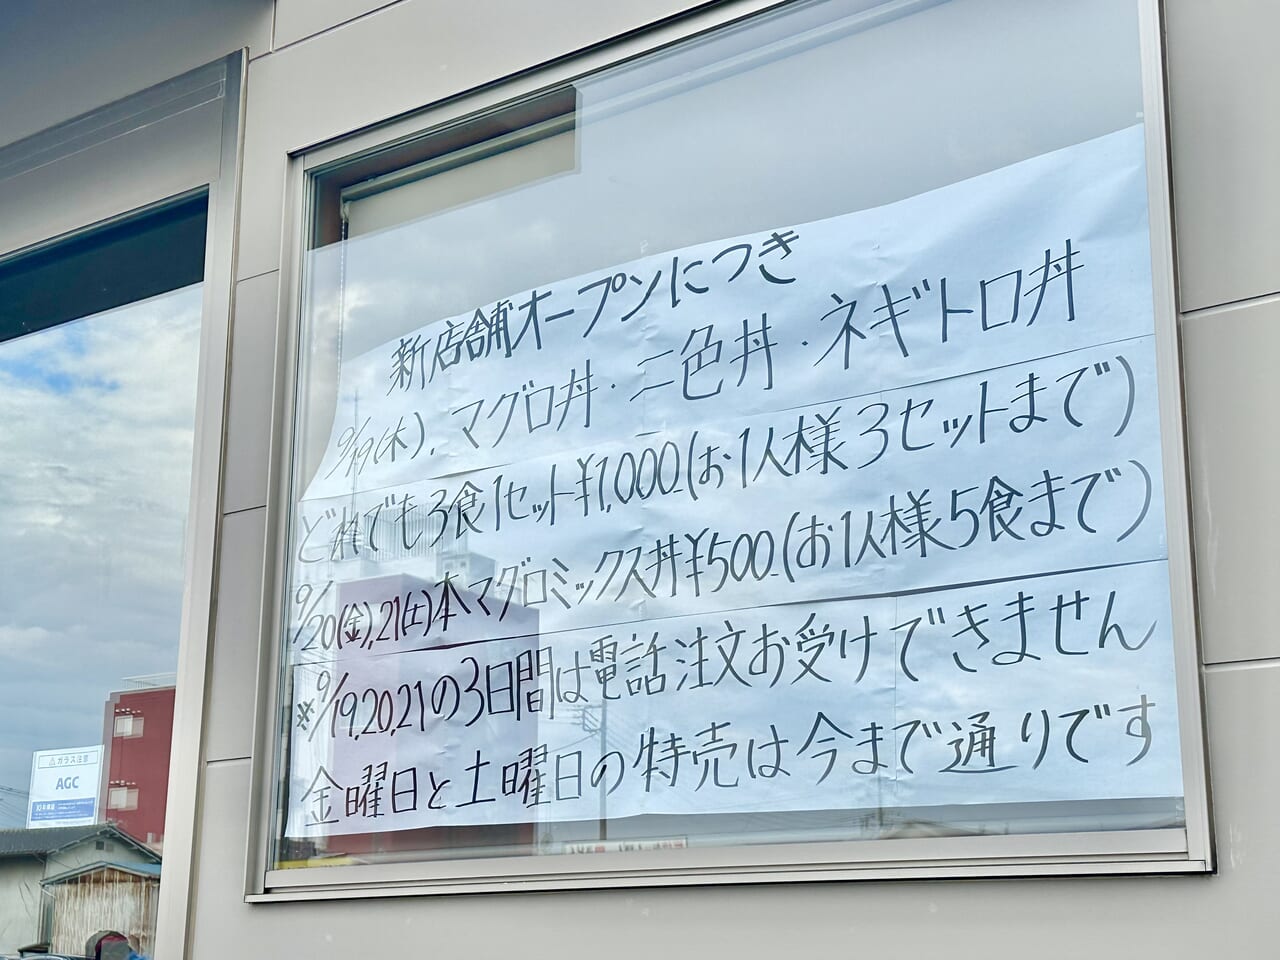 新店舗オープンにつき
9/19(木)、マグロ丼・二色丼・ネギトロ丼
どれでも3食1セット¥1,000-(お1人様3セットまで)
9/20(金),21(土)本マグロミックス丼¥500-(お1人様5食まで)
※9/19,20,21の3日間は電話注文お受けできません
金曜日と土曜日の特売は今まで通りです
ガラス注意
AGC